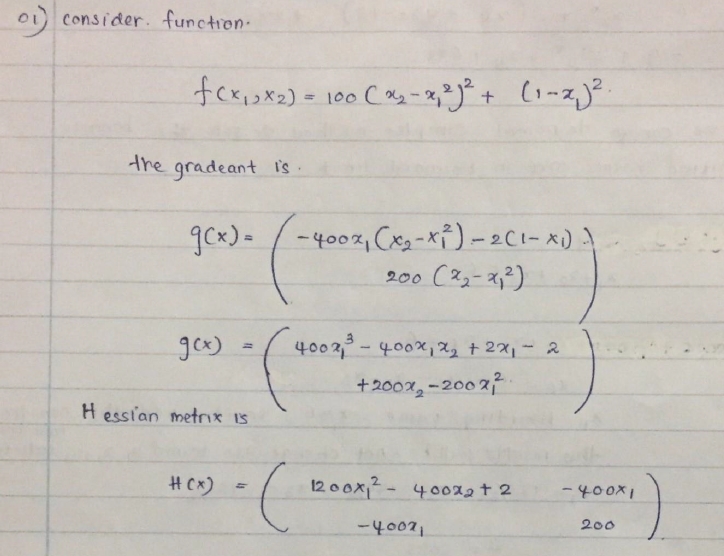 01) consider. function.
f(x₁,x₂) = 100 (x₂-x₁²)² + (1-x₁)².
the gradeant is.
g(x) = ( -400x₁(x₂-x₁²) - 2(1-x₁)
200 (x₂-x₁²) )
g(x) = ( 400x₁³ - 400x₁x₂ + 2x₁ - 2
+200x₂ - 200x₁² )
Hessian metrix is
H(x) = ( 1200x₁² - 400x₂ + 2 -400x₁
-400x₁ 200 )